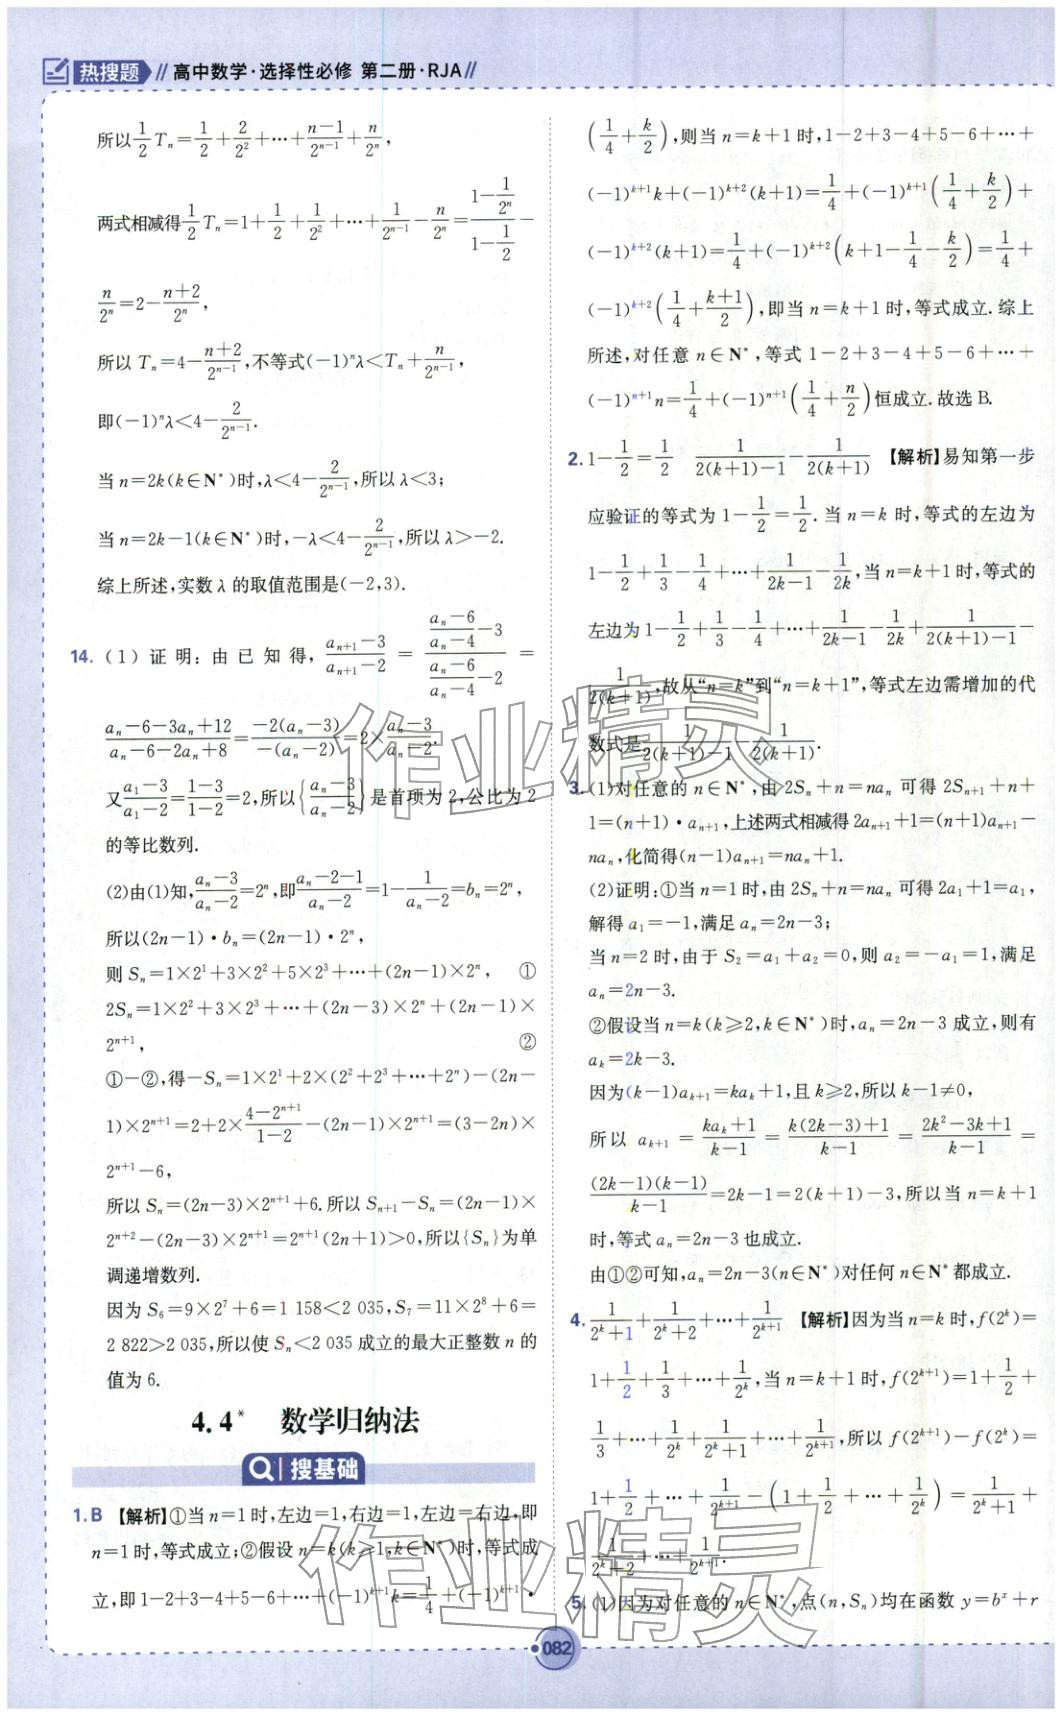 热搜题 // 高中数学·选择性必修 第二册·RJA //
所以1/2 Tₙ=1/2+2/2²+…+(n-1)/2ⁿ⁻¹+n/2ⁿ,
两式相减得1/2 Tₙ=1+1/2+1/2²+…+1/2ⁿ⁻¹-n/2ⁿ=(1-1/2ⁿ)/(1-1/2)-
n/2ⁿ=2-(n+2)/2ⁿ,
所以 Tₙ=4-(n+2)/2ⁿ⁻¹,不等式(-1)ⁿλ<Tₙ+n/2ⁿ⁻¹,
即(-1)ⁿλ<4-2/2ⁿ⁻¹.
当 n=2k(k∈N*)时,λ<4-2/2ⁿ⁻¹,所以 λ<3;
当 n=2k-1(k∈N*)时,-λ<4-2/2ⁿ⁻¹,所以 λ>-2.
综上所述,实数 λ 的取值范围是(-2,3).
14. (1) 证明: 由已知得, (aₙ₊₁-3)/(aₙ₊₁-2) = ((aₙ-6)/(aₙ-4)-3)/((aₙ-6)/(aₙ-4)-2) =
(aₙ-6-3aₙ+12)/(aₙ-6-2aₙ+8)=-2(aₙ-3)/-(aₙ-2)=2×(aₙ-3)/(aₙ-2).
又(a₁-3)/(a₁-2)=(1-3)/(1-2)=2,所以{(aₙ-3)/(aₙ-2)}是首项为 2,公比为 2
的等比数列.
(2)由(1)知,(aₙ-3)/(aₙ-2)=2ⁿ,即(aₙ-2-1)/(aₙ-2)=1-1/(aₙ-2)=bₙ=2ⁿ,
所以(2n-1)·bₙ=(2n-1)·2ⁿ,
则 Sₙ=1×2¹+3×2²+5×2³+…+(2n-1)×2ⁿ, ①
2Sₙ=1×2²+3×2³+…+(2n-3)×2ⁿ+(2n-1)×
2ⁿ⁺¹, ②
①-②,得-Sₙ=1×2¹+2×(2²+2³+…+2ⁿ)-(2n-
1)×2ⁿ⁺¹=2+2×(4-2ⁿ⁺¹)/(1-2)-(2n-1)×2ⁿ⁺¹=(3-2n)×
2ⁿ⁺¹-6,
所以 Sₙ=(2n-3)×2ⁿ⁺¹+6.所以 Sₙ₊₁-Sₙ=(2n-1)×
2ⁿ⁺²-(2n-3)×2ⁿ⁺¹=2ⁿ⁺¹(2n+1)>0,所以{Sₙ}为单
调递增数列.
因为 S₆=9×2⁷+6=1 158<2 035,S₇=11×2⁸+6=
2 822>2 035,所以使 Sₙ<2 035 成立的最大正整数 n 的
值为 6.
4.4* 数学归纳法
搜基础
1.B 【解析】①当 n=1 时,左边=1,右边=1,左边=右边,即
n=1 时,等式成立;②假设 n=k(k≥1,k∈N*)时,等式成
立,即 1-2+3-4+5-6+…+(-1)ᵏ⁺¹k=1/4+(-1)ᵏ⁺¹·
(1/4+k/2),则当 n=k+1 时,1-2+3-4+5-6+…+
(-1)ᵏ⁺¹k+(-1)ᵏ⁺²(k+1)=1/4+(-1)ᵏ⁺¹(1/4+k/2)+
(-1)ᵏ⁺²(k+1)=1/4+(-1)ᵏ⁺²(k+1-1/4-k/2)=1/4+
(-1)ᵏ⁺²(1/4+(k+1)/2),即当 n=k+1 时,等式成立.综上
所述,对任意 n∈N*,等式 1-2+3-4+5-6+…+
(-1)ⁿ⁺¹n=1/4+(-1)ⁿ⁺¹(1/4+n/2)恒成立.故选 B.
2. 1-1/2=1/2 1/(2(k+1)-1)-1/(2(k+1)) 【解析】易知第一步
应验证的等式为 1-1/2=1/2.当 n=k 时,等式的左边为
1-1/2+1/3-1/4+…+1/(2k-1)-1/2k,当 n=k+1 时,等式的
左边为 1-1/2+1/3-1/4+…+1/(2k-1)-1/2k+1/(2(k+1)-1)-
1/(2(k+1)),故从“n=k”到“n=k+1”,等式左边需增加的代
数式是1/(2(k+1)-1)-1/(2(k+1)).
3. (1)对任意的 n∈N*,由 2Sₙ+n=naₙ 可得 2Sₙ₊₁+n+
1=(n+1)·aₙ₊₁,上述两式相减得 2aₙ₊₁+1=(n+1)aₙ₊₁-
naₙ,化简得(n-1)aₙ₊₁=naₙ+1.
(2)证明:①当 n=1 时,由 2Sₙ+n=naₙ 可得 2a₁+1=a₁,
解得 a₁=-1,满足 aₙ=2n-3;
当 n=2 时,由于 S₂=a₁+a₂=0,则 a₂=-a₁=1,满足
aₙ=2n-3.
②假设当 n=k(k≥2,k∈N*)时,aₙ=2n-3 成立,则有
aₖ=2k-3.
因为(k-1)aₖ₊₁=kaₖ+1,且 k≥2,所以 k-1≠0,
所以 aₖ₊₁=(kaₖ+1)/(k-1)=(k(2k-3)+1)/(k-1)=(2k²-3k+1)/(k-1)=
(2k-1)(k-1)/(k-1)=2k-1=2(k+1)-3,所以当 n=k+1
时,等式 aₙ=2n-3 也成立.
由①②可知,aₙ=2n-3(n∈N*)对任何 n∈N*都成立.
4. 1/(2ᵏ+1)+1/(2ᵏ+2)+…+1/2ᵏ⁺¹ 【解析】因为当 n=k 时,f(2ᵏ)=
1+1/2+1/3+…+1/2ᵏ,当 n=k+1 时,f(2ᵏ⁺¹)=1+1/2+
1/3+…+1/2ᵏ+1/(2ᵏ+1)+…+1/2ᵏ⁺¹,所以 f(2ᵏ⁺¹)-f(2ᵏ)=
1+1/2+…+1/2ᵏ⁺¹-(1+1/2+…+1/2ᵏ)=1/(2ᵏ+1)+
1/(2ᵏ+2)+…+1/2ᵏ⁺¹.
5. (1)因为对任意的 n∈N*,点(n,Sₙ)均在函数 y=bˣ+r
082
作业精灵
作业精灵